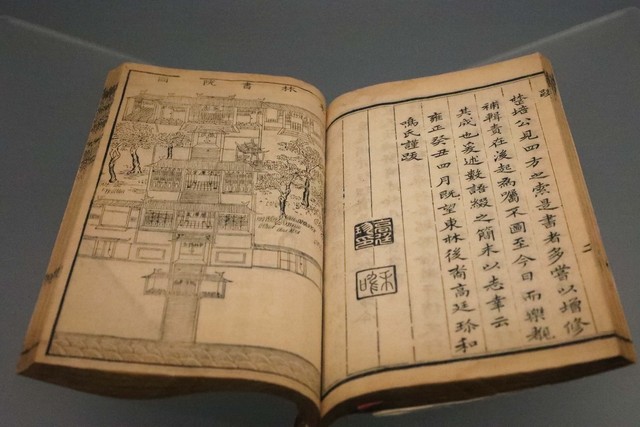 林書院四
跋
二
培公見四方之索是書者多嘗以增修
補輯責在後起為囑不圖至今日而樂觀
其成也爰述數語綴之簡末以志幸云
雍正癸丑四月既望東林後裔高廷珍和
鳴氏謹跋